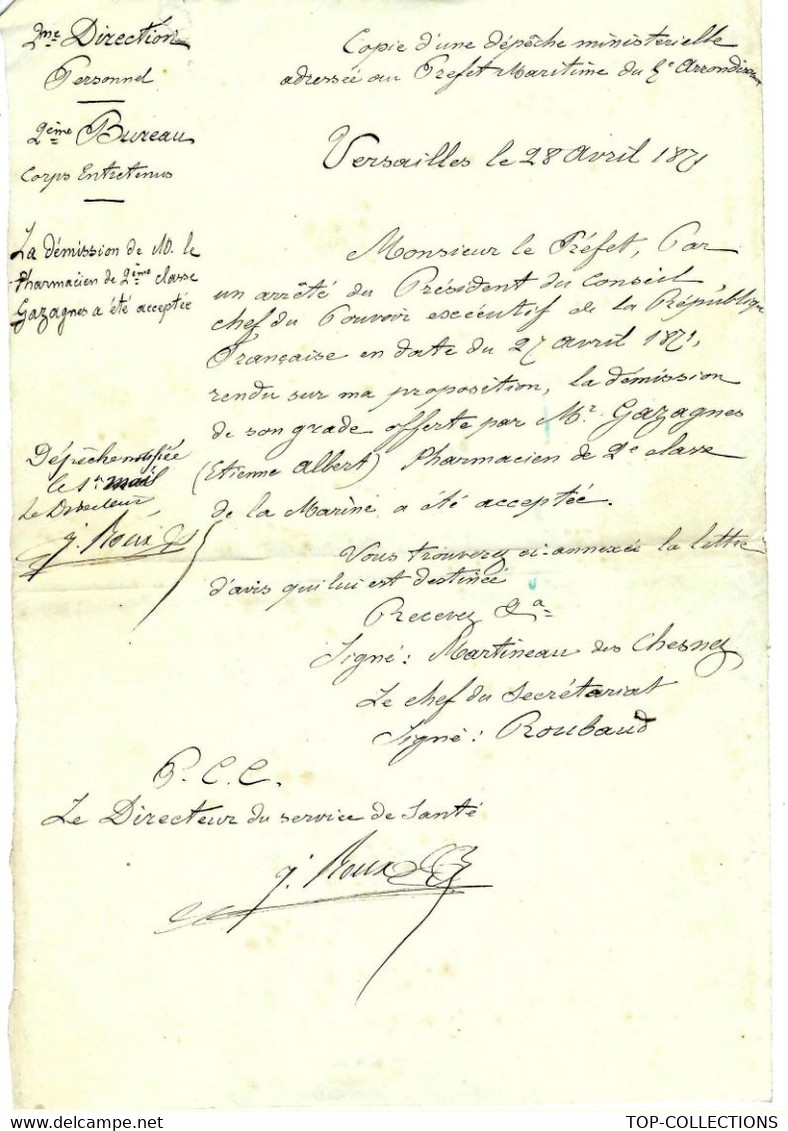 2me Direction
Personnel
2ème Bureau
Corps Entretenus
La démission de M. le
Pharmacien de 2ème classe
Gazagnes a été acceptée
Dépêche notifiée
le 1er mai
Le Directeur,
J. Roux
Copie d'une dépêche ministerielle
adressée au Préfet Maritime du 5e Arrondissem
Versailles le 28 avril 1871
Monsieur le Préfet, Par
un arrêté du Président du Conseil
chef du Pouvoir exécutif de la République
Française en date du 27 avril 1871,
rendu sur ma proposition, la démission
de son grade offerte par Mr. Gazagnes
(Etienne Albert) Pharmacien de 2e classe
de la Marine a été acceptée.
Vous trouverez ci-annexée la lettre
d'avis qui lui est destinée
Recevez &a
Signé: Martineau des Chesnez
Le chef du Secrétariat
Signé: Roubaud
P. C. C.
Le Directeur du service de Santé
J. Roux
TOP-COLLECTIONS